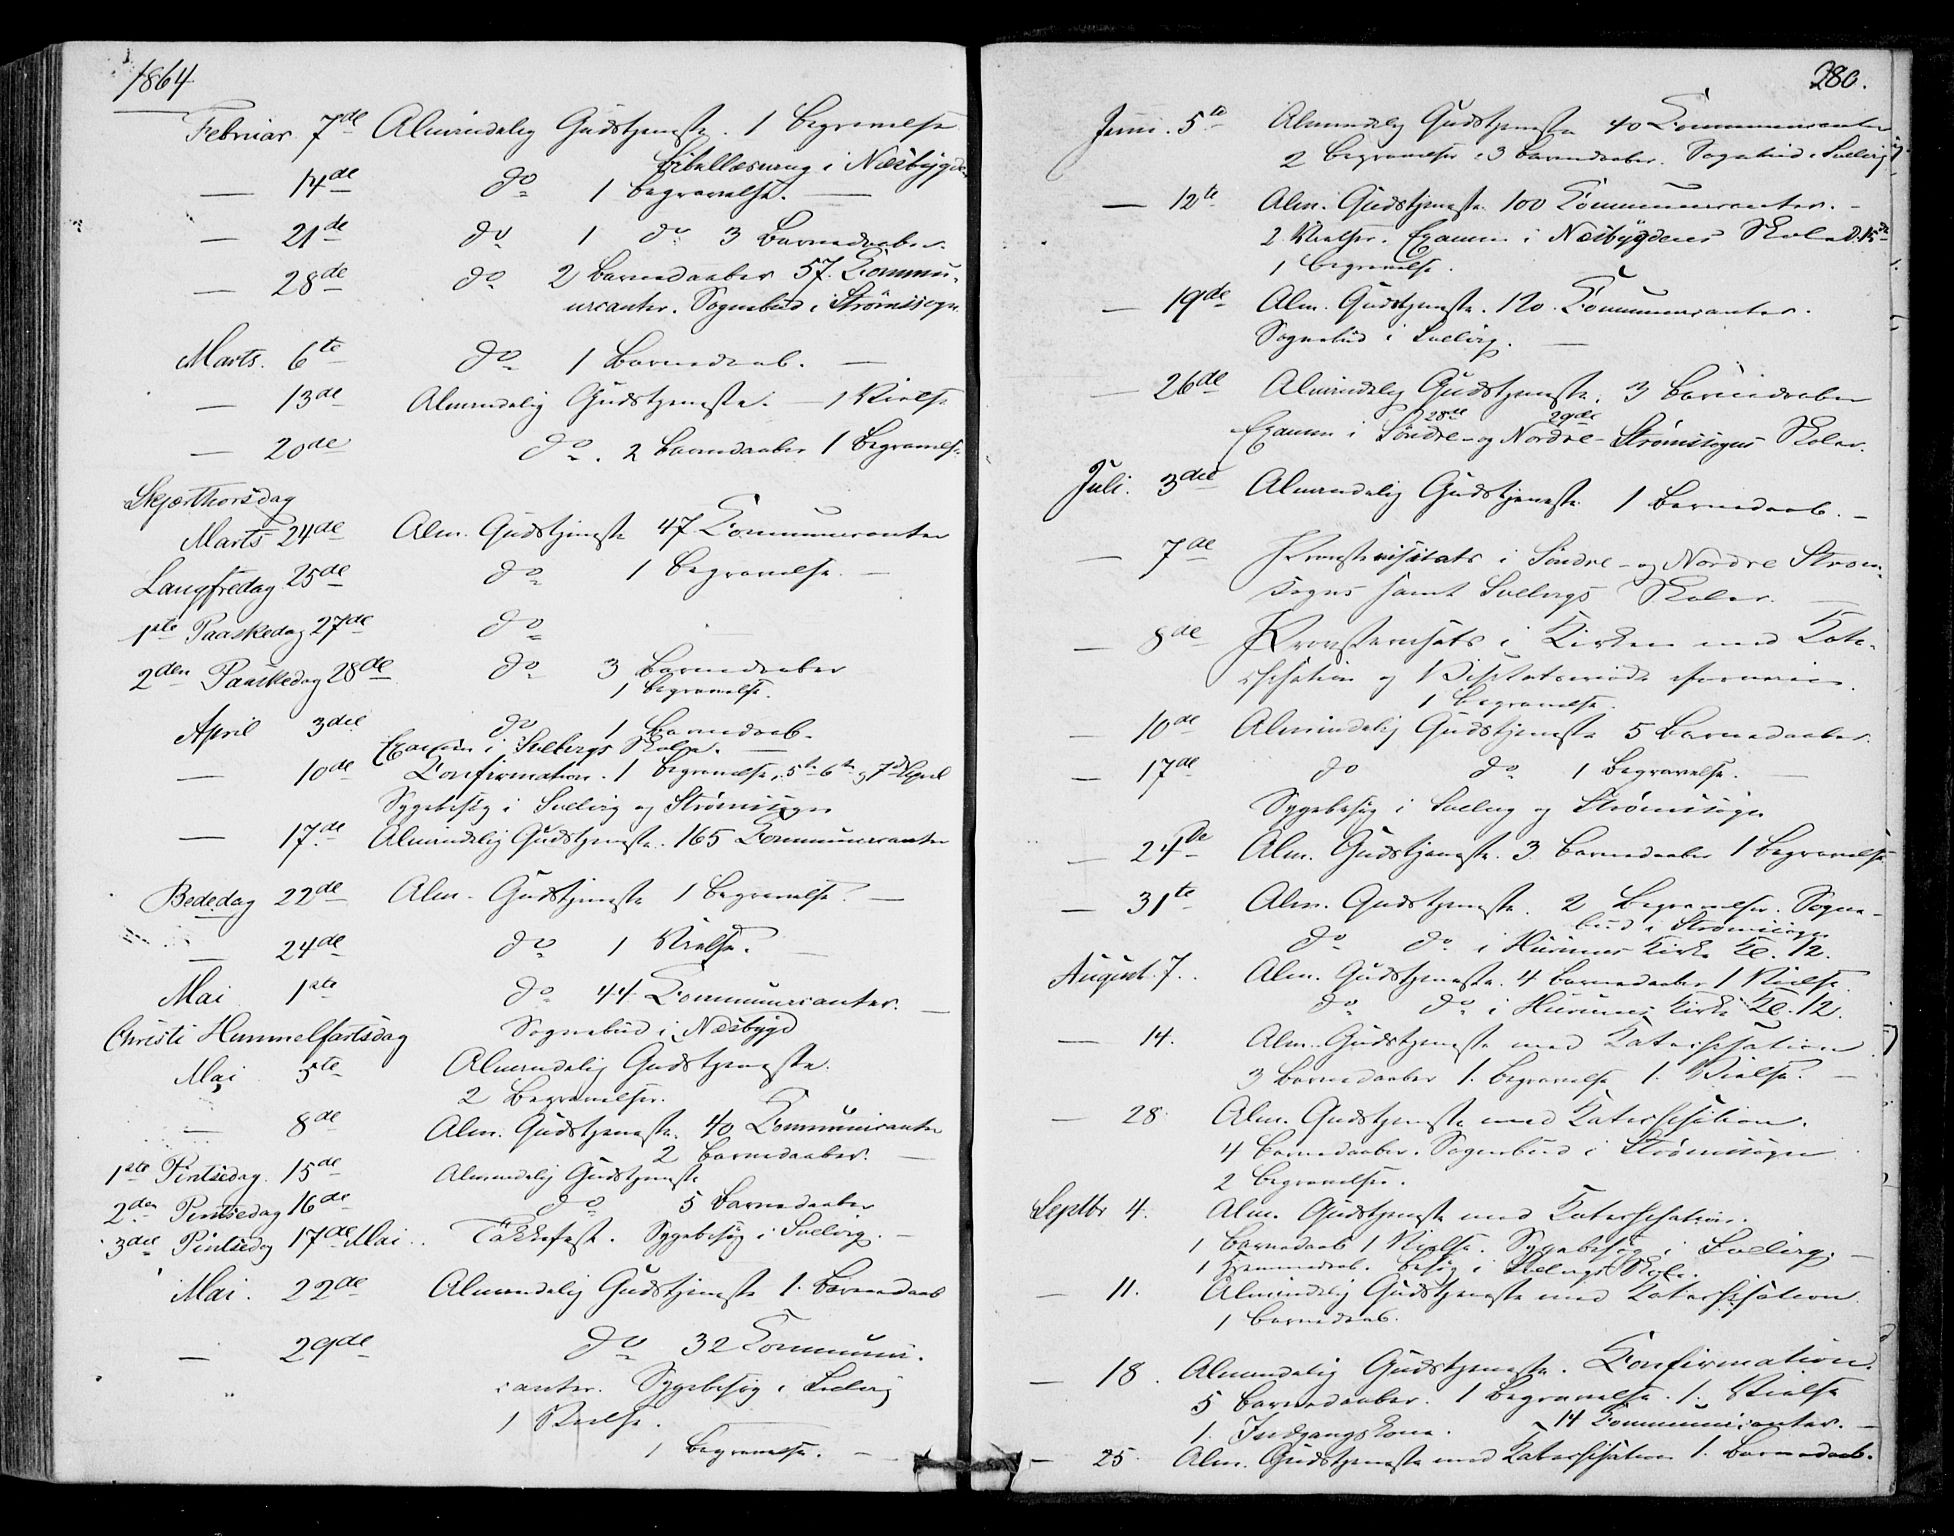 1864
Februar 7de Almindelig Gudstjeneste. 1 Begravelse
Bibellæsning i Næsbygden
— 14de do 1 Begravelse. —
— 21de do 1 do 3 Barnedaaber.
— 28de do 2 Barnedaaber 57. Commu-
nicanter. Sognebud i Strømssogn.
Marts. 6te do 1 Barnedaab. —
— 13de Almindelig Gudstjeneste. — 1 Vielse
— 20de do. 2 Barnedaaber 1 Begravelse.
Skjærthorsdag
Marts 24de Alm. Gudstjeneste 47 Communicanter
Langfredag 25de do 1 Begravelse. —
1ste Paaskedag 27de do —
2den Paaskedag 28de do 3 Barnedaaber
1 Begravelse.
April 3die do 1 Barnedaab.
Examen i Svelvigs Skole. —
— 10de Confirmation. 1 Begravelse, 5te 6te og 7de April
Sygebesøg i Svelvig og Strømssogn
— 17de Almindelig Gudstjeneste. 165 Communicanter
Bededag 22de Alm. Gudstjeneste 1 Begravelse. —
— 24de do 1 Vielse. —
Mai 1ste do 44 Communicanter. —
Christi Himmelfartsdag Sognebud i Næsbygd
Mai 5te Almindelig Gudstjeneste.
2 Begravelser.
— 8de Alm. Gudstjeneste. 40 Communicanter
2 Barnedaaber. —
1ste Pintsedag. 15de Almindelig Gudstjeneste
2den Pintsedag 16de do 5 Barnedaaber
3die Pintsedag 17de Mai. Takkefest. Sygebesøg i Svelvig. —
Mai. 22de Almindelig Gudstjeneste 1. Barnedaab
— 29de do 32 Communi-
canter. Sygebesøg i Svelvig
1 Vielse.
1 Begravelse. —
280.
Juni. 5te Almindelig Gudstjeneste 40 Communicanter
2 Begravelser, 3 Barnedaaber. Sognebud i Svelvig
— 12te Alm. Gudstjeneste. 100 Communicanter. —
2 Vielser. Examen i Næsbygdens Skole d. 15de
1 Begravelse.
— 19de Alm. Gudstjeneste. 120. Communicanter.
Sognebud i Svelvig. —
— 26de Almindelig Gudstjeneste. 3 Barnedaaber
28de 29de
Examen i Søndre- og Nordre- Strømssogns Skoler.
Juli. 3die Almindelig Gudstjeneste 1 Barnedaab. —
— 7de Provstevisitats i Søndre- og Nordre Strøm-
sogns samt Svelvigs Skoler. —
— 8de Provstevisitats i Kirken med Kate-
chisation og
1 Begravelse.
— 10de Almindelig Gudstjeneste 5 Barnedaaber.
— 17de do do 1 Begravelse. —
Sygebesøg i Svelvig og Strømssogn
— 24de Alm. Gudstjeneste. 3 Barnedaaber 1 Begravelse
— 31te Alm. Gudstjeneste. 2 Begravelser. Sogne-
bud i Strømssogn
do do i Hurums Kirke Kl. 12.
August. 7. Alm. Gudstjeneste. 4 Barnedaaber 1 Vielse
do do i Hurums Kirke Kl. 12.
— 14. Alm. Gudstjeneste med Katechisation
3 Barnedaaber 1. Begravelse 1. Vielse. —
— 28. Alm. Gudstjeneste med Katechisation.
4 Barnedaaber. Sognebud i Strømssogn
2 Begravelser.
Septbr 4. Alm. Gudstjeneste med Katechisation.
1 Barnedaab 1 Vielse. Sygebesøg i Svelvig. —
1 Hjemmedaab. Besøg i Svelvigs Skole.
— 11. Almindelig Gudstjeneste med Katechisation
1 Barnedaab.
— 18. Almindelig Gudstjeneste. Confirmation.
5 Barnedaaber. 1 Begravelse. 1. Vielse
1. Indgangskone. 14 Communicanter. —
— 25. Alm. Gudstjeneste med Katechisation 1. Barnedaab.